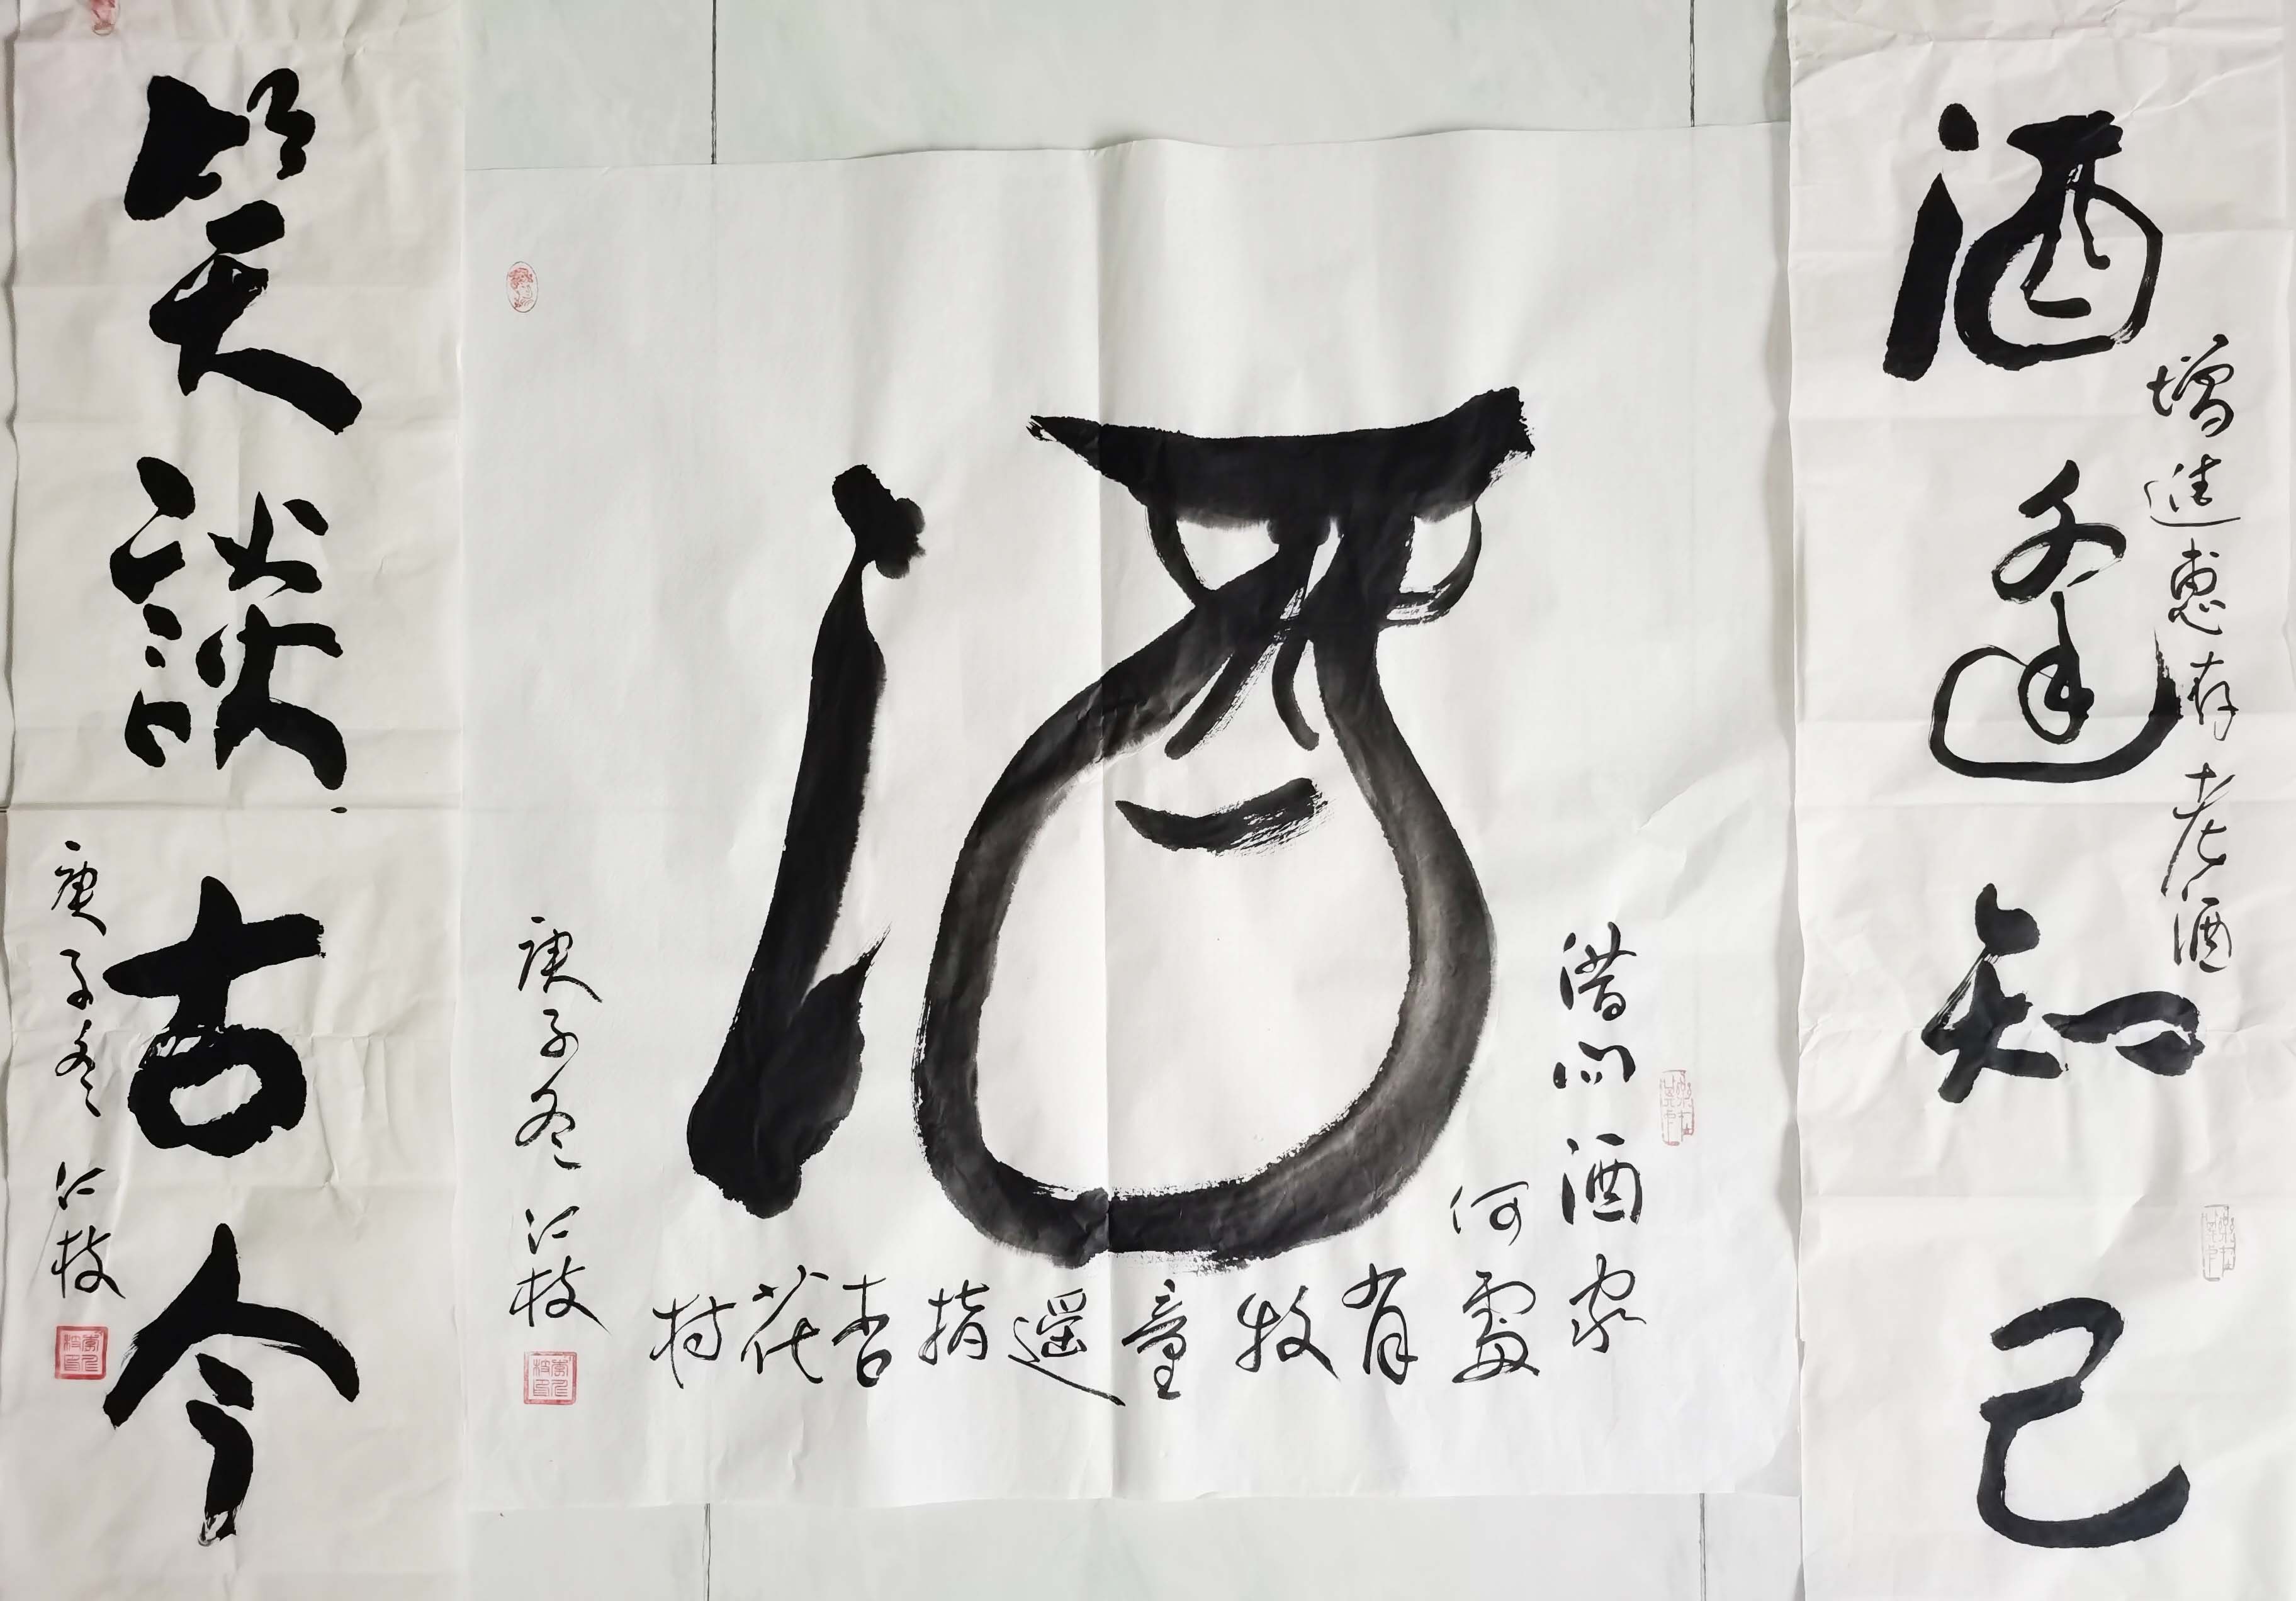 酒逢知己
增進惠存老酒
酒
借问酒家
何處
有牧童遥指杏花村
庚子冬江枝
笑談古今
庚子冬江枝